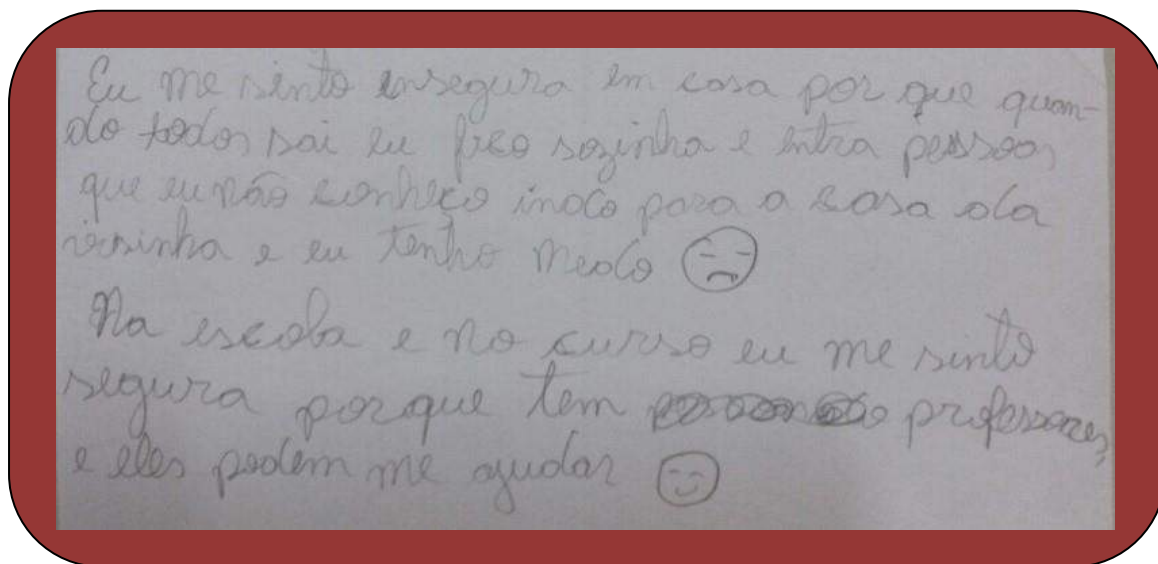 Eu me sinto insegura em casa por que quan-
do todos sai eu fico sozinha e entra pessoas
que eu não conheço indo para a casa da
vizinha e eu tenho medo
Na escola e no curso eu me sinto
segura porque tem professores,
e eles podem me ajudar